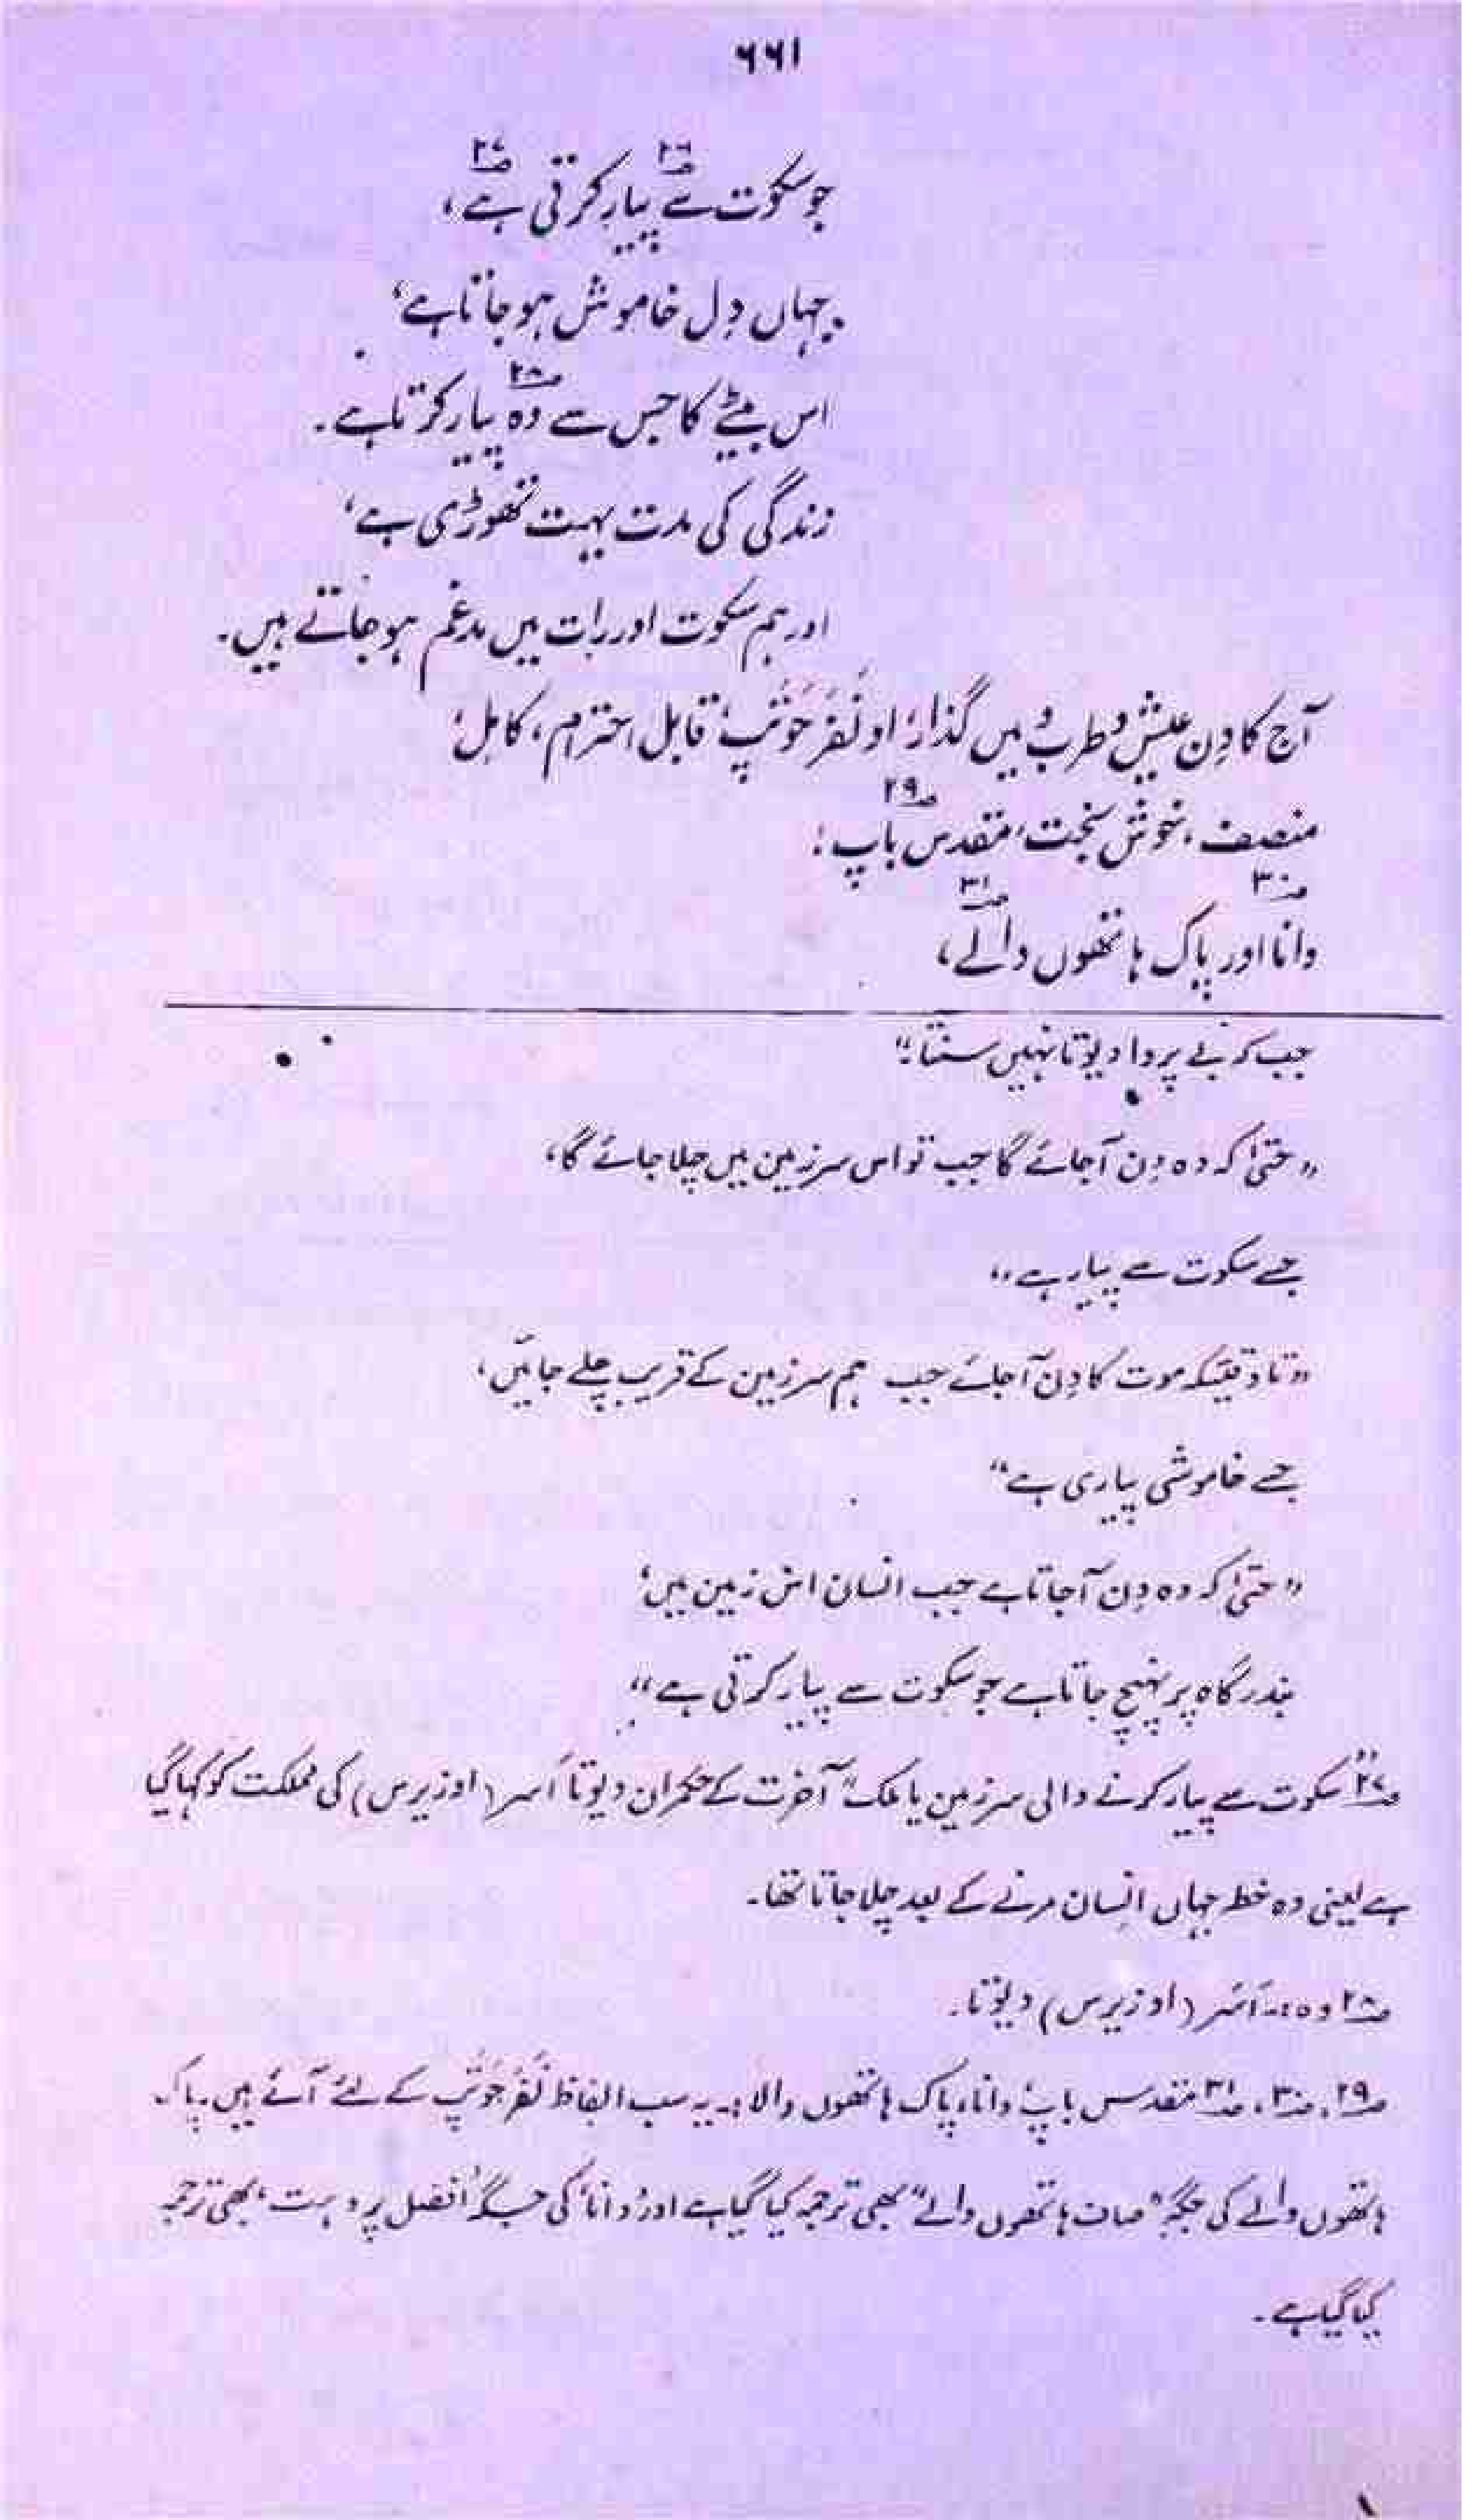 ۶۶۱
جو سکوت سے ؃۲۶ پیار کرتی ہے ؃۲۷،
جہاں دِل خاموش ہو جاتا ہے،
اس بیٹے کا جس سے وہ ؃۲۸ پیار کرتا ہے۔
زندگی کی مدت بہت تھوڑی ہے،
اور ہم سکوت اور رات میں مدغم ہو جاتے ہیں۔
آج کا دِن عیش و طرب میں گذار، او نَفَر حَوتَپ، قابل احترام، کاہل،
منصف، خوش بخت، مقدس باپ ؃۲۹؛
دانا ؃۳۰ اور پاک ہاتھوں والے ؃۳۱،
جب کہ بے پروا دیوتا نہیں سنتا۔"
"حتیٰ کہ وہ دِن آجائے گا جب تو اس سرزمین میں چلا جائے گا،
جسے سکوت سے پیار ہے"
"تا وقتیکہ موت کا دِن آجائے جب ہم سرزمین کے قریب چلے جائیں،
جسے خاموشی پیاری ہے"
"حتیٰ کہ وہ دِن آجاتا ہے جب انسان اس زمین میں،
بندرگاہ پر پہنچ جاتا ہے جو سکوت سے پیار کرتی ہے"
؃۲۷ "سکوت سے پیار کرنے والی سرزمین یا ملک" آخرت کے حکمران دیوتا اَسَر (اوزیرس) کی مملکت کو کہا گیا
ہے یعنی وہ خطہ جہاں انسان مرنے کے بعد چلا جاتا تھا۔
؃۲۸ وہ :۔ اَسَر (اوزیرس) دیوتا۔
؃۲۹، ؃۳۰، ؃۳۱ مقدس باپ، دانا، پاک ہاتھوں والا :۔ یہ سب الفاظ نَفَر حَوتَپ کے لئے آئے ہیں۔ پاک
ہاتھوں والے کی جگہ "صاف ہاتھوں والے" بھی ترجمہ کیا گیا ہے اور 'دانا' کی جگہ 'افضل پروہت' بھی ترجمہ
کیا گیا ہے۔